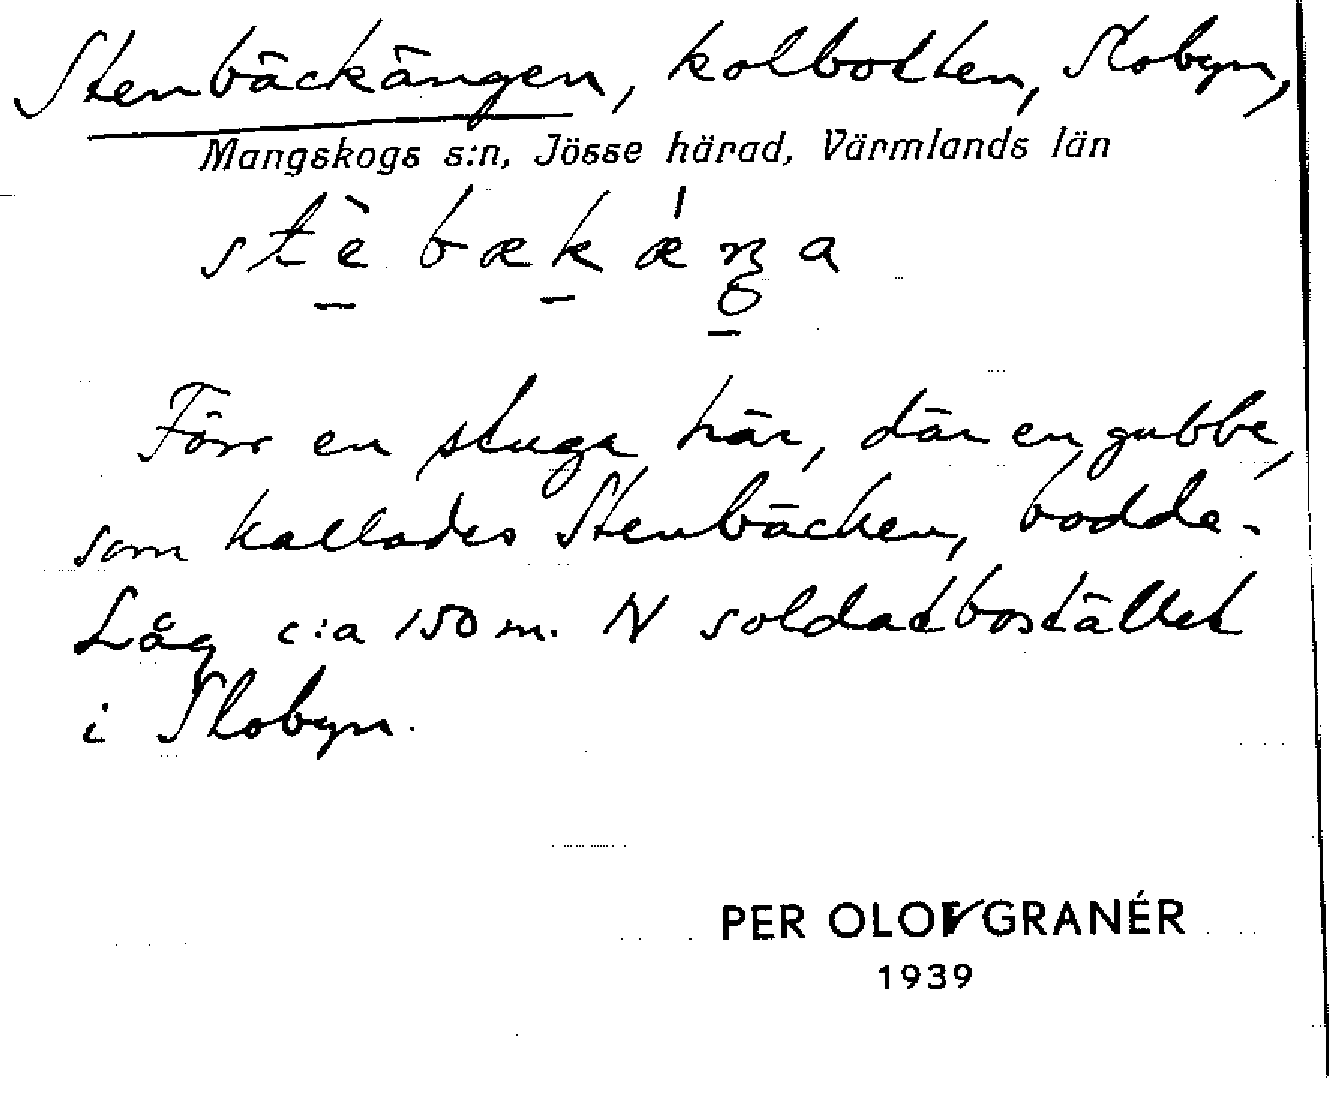 Stenbäckängen, kolbotten, Slobyn,
Mangskogs s:n, Jösse härad, Värmlands län
Förr en stuga här, där en gubbe,
som kallades Stenbäcken, bodde.
Låg c:a 150 m. N soldatbostället
i Slobyn.
PER OLOV GRANÉR
1939